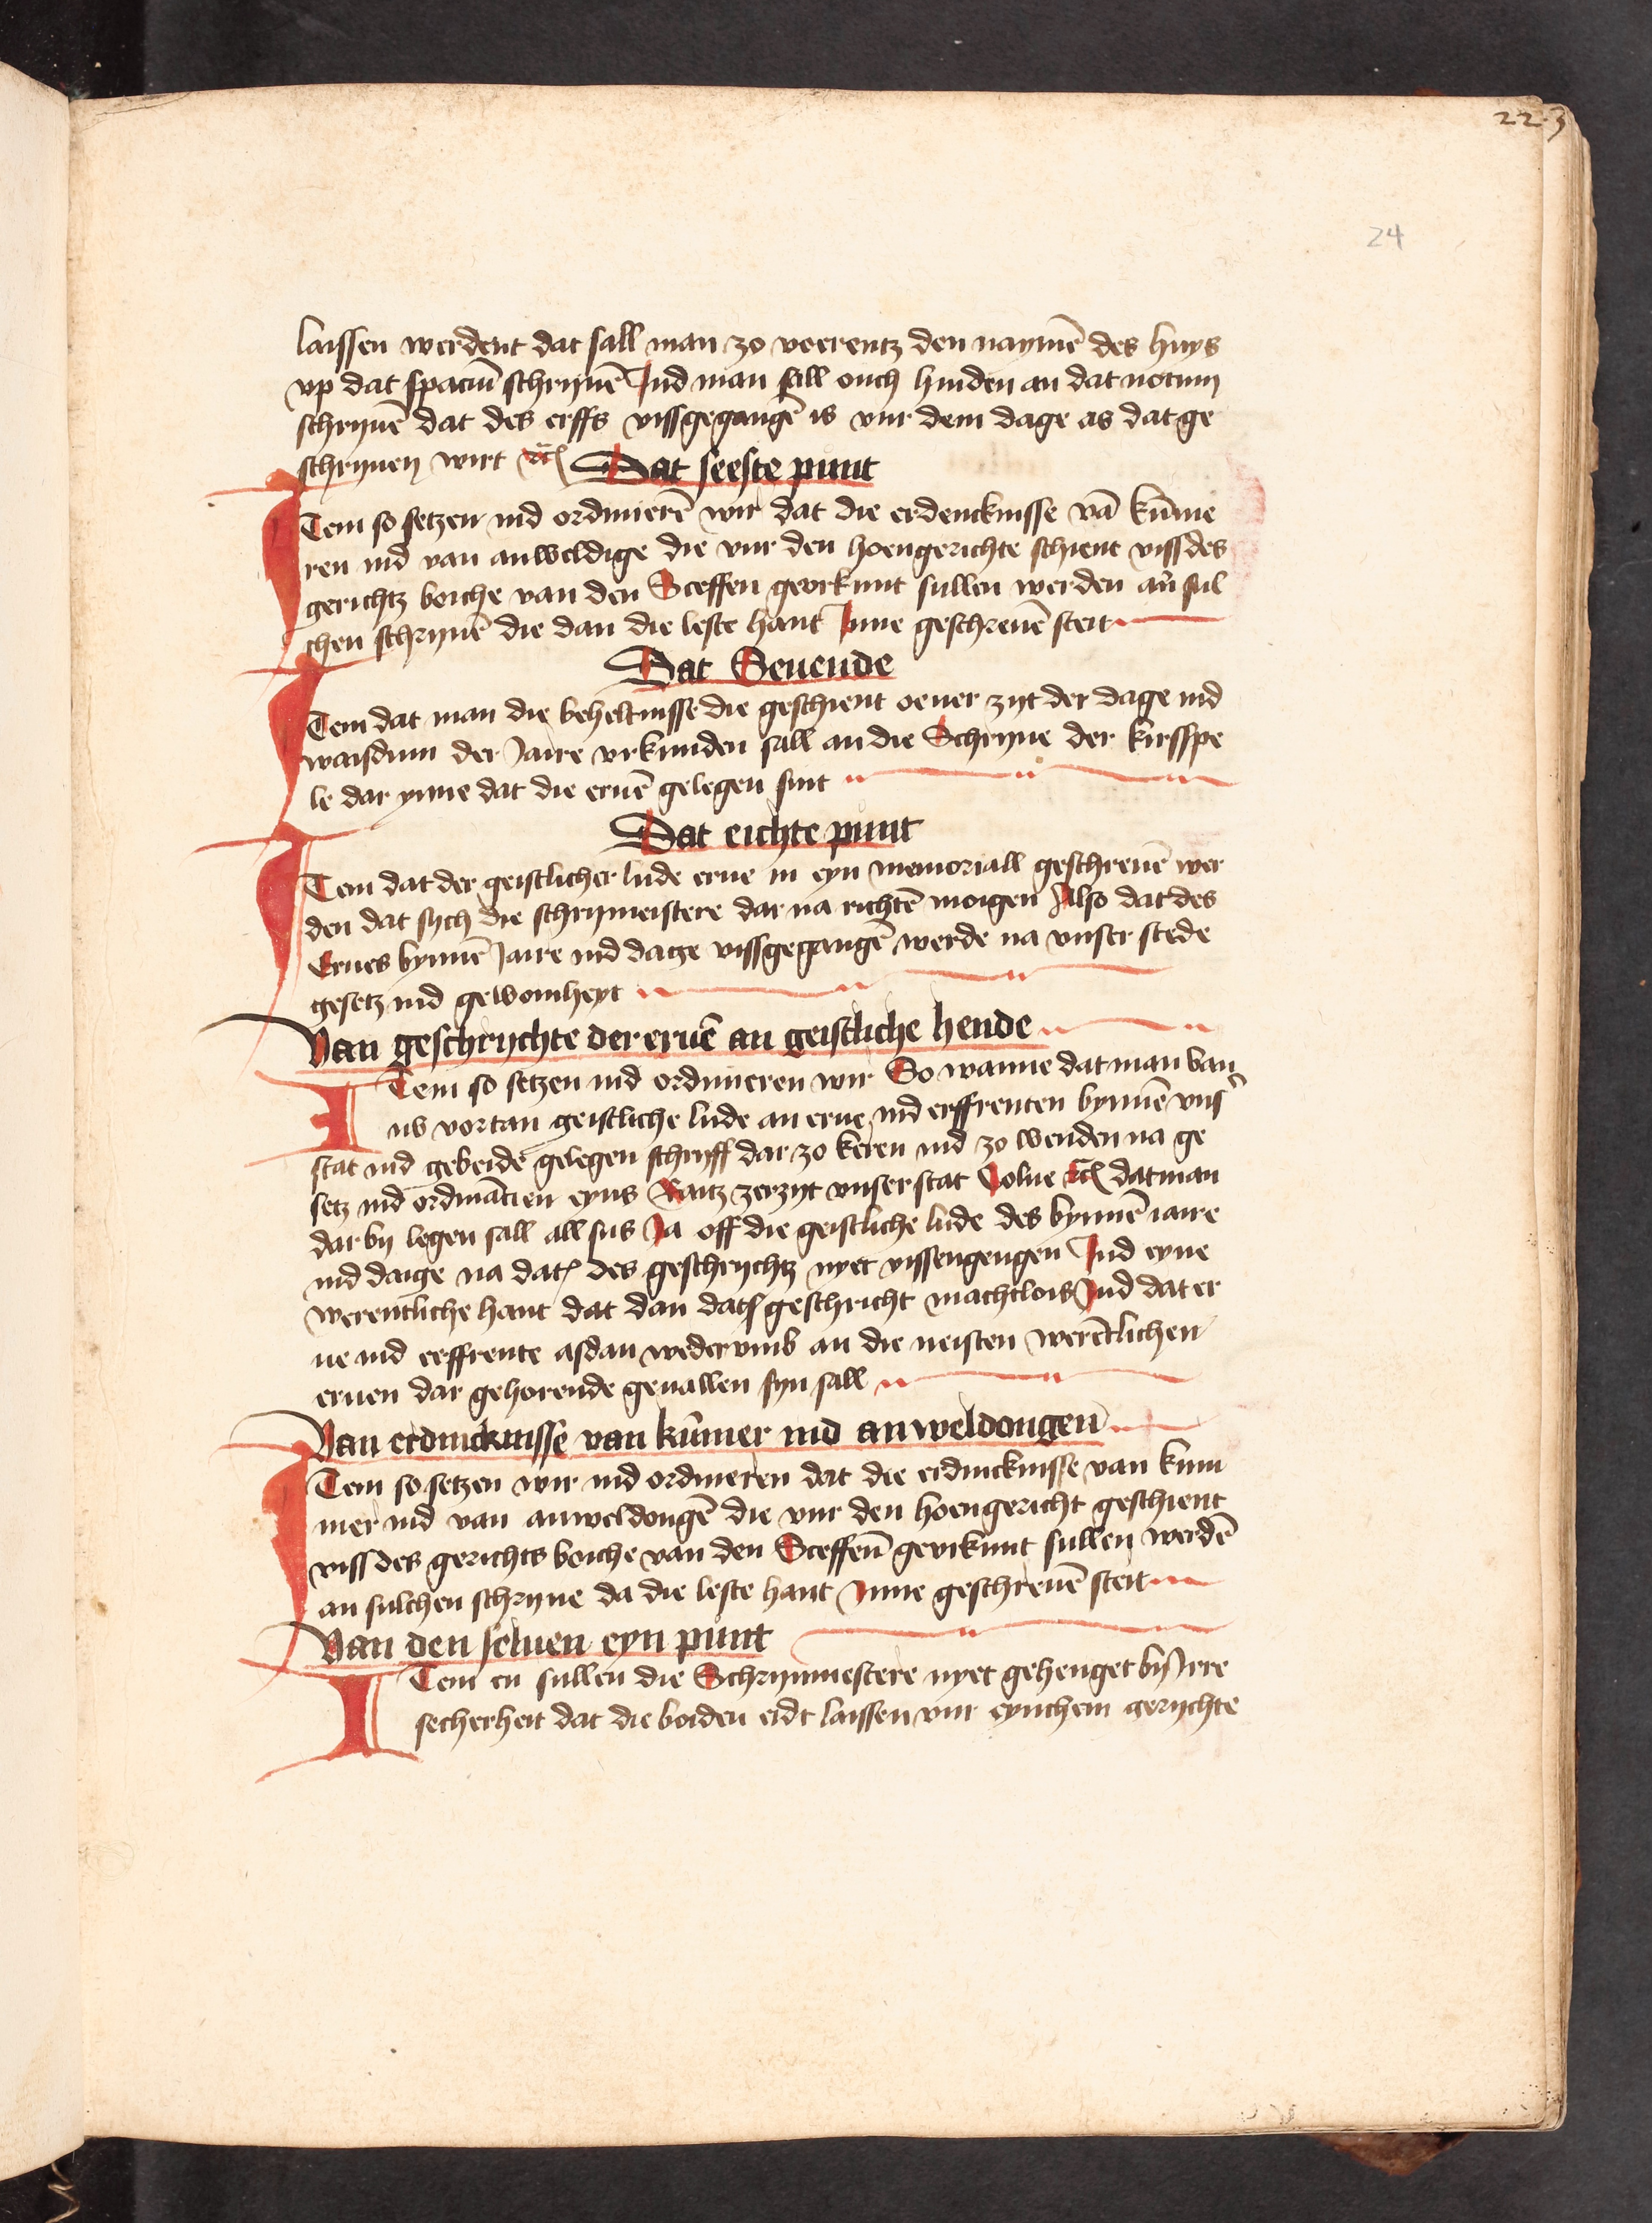 22.3
24
laissen werdent dat sall man zo voerentz den naymē des huys
vp dat spaciū schrijuē Ind man sall ouch hinden an dat notum
schrijuē dat des erffs vissgegangē is vur dem dage as dat ge
schrijuen wirt ꝛc̄ Dat seeste punt
Item so setzen ind ordinierē wir dat die erdencknisse vā kūme
ren ind van anweldige die vur den hoengerichte schient viss des
gerichtz boiche van den Sceffen georkunt sullen werden an sul
chen schrijnē die dan die leste hant Inne geschreuē steit
Dat Seuende
Item dat man die beheltnisse die geschient oeuer zijt der dage ind
waisdum der Jaire vrkunden sall an die Schrijne der kirsspe
le dar ynne dat die eruē gelegen sint
Dat eichte punt
Item dat der geistlicher lude erue in eyn memoriall geschreuē wer
den dat sych die schrijmeistere dar na richtē moigen Also dat des
Erues bynnē Jaire ind dage vissgegangē werde na vnser stede
gesetz ind gewoinheyt
Van geschrychte der eruē an geistliche hende
Item so setzen ind ordinieren wir So wanne dat man van
nv vortan geistliche lude an erue ind erffrenten bynnē vnser
stat ind gebeide gelegen schryff dar zo keren ind zo wenden na ge
setz ind ordinācien eyns Raitz zerzijt vnser stat Colne ꝛc̄ dat man
dar by legen sall all sus Ja off die geistliche lude des bynnē iaire
ind daige na dat̄ des geschrychtz nyet vissengengen Ind eyne
werentliche hant dat dan dat geschricht machtlois Ind dat er
ue ind erffrente asdan wederumb an die neisten werētlichen
eruen dar gehorende geuallen syn sall
Van erdinckenisse van kūmer ind anweldongen
Item so setzen wir ind ordineren dat die erdinckenisse van kum
mer ind van anweldongē die vur den hoengericht geschient
viss des gerichts boiche van den Sceffenn̄ georkunt sullen werdē
an sulchen schrijne da die leste hant Inne geschreuē steit
Van den seluen eyn punt
Item en sullen die Schrijnmestere nyet gehenget by Irre
secherheit dat die boiden eidt laissen vur eynchem gerychte